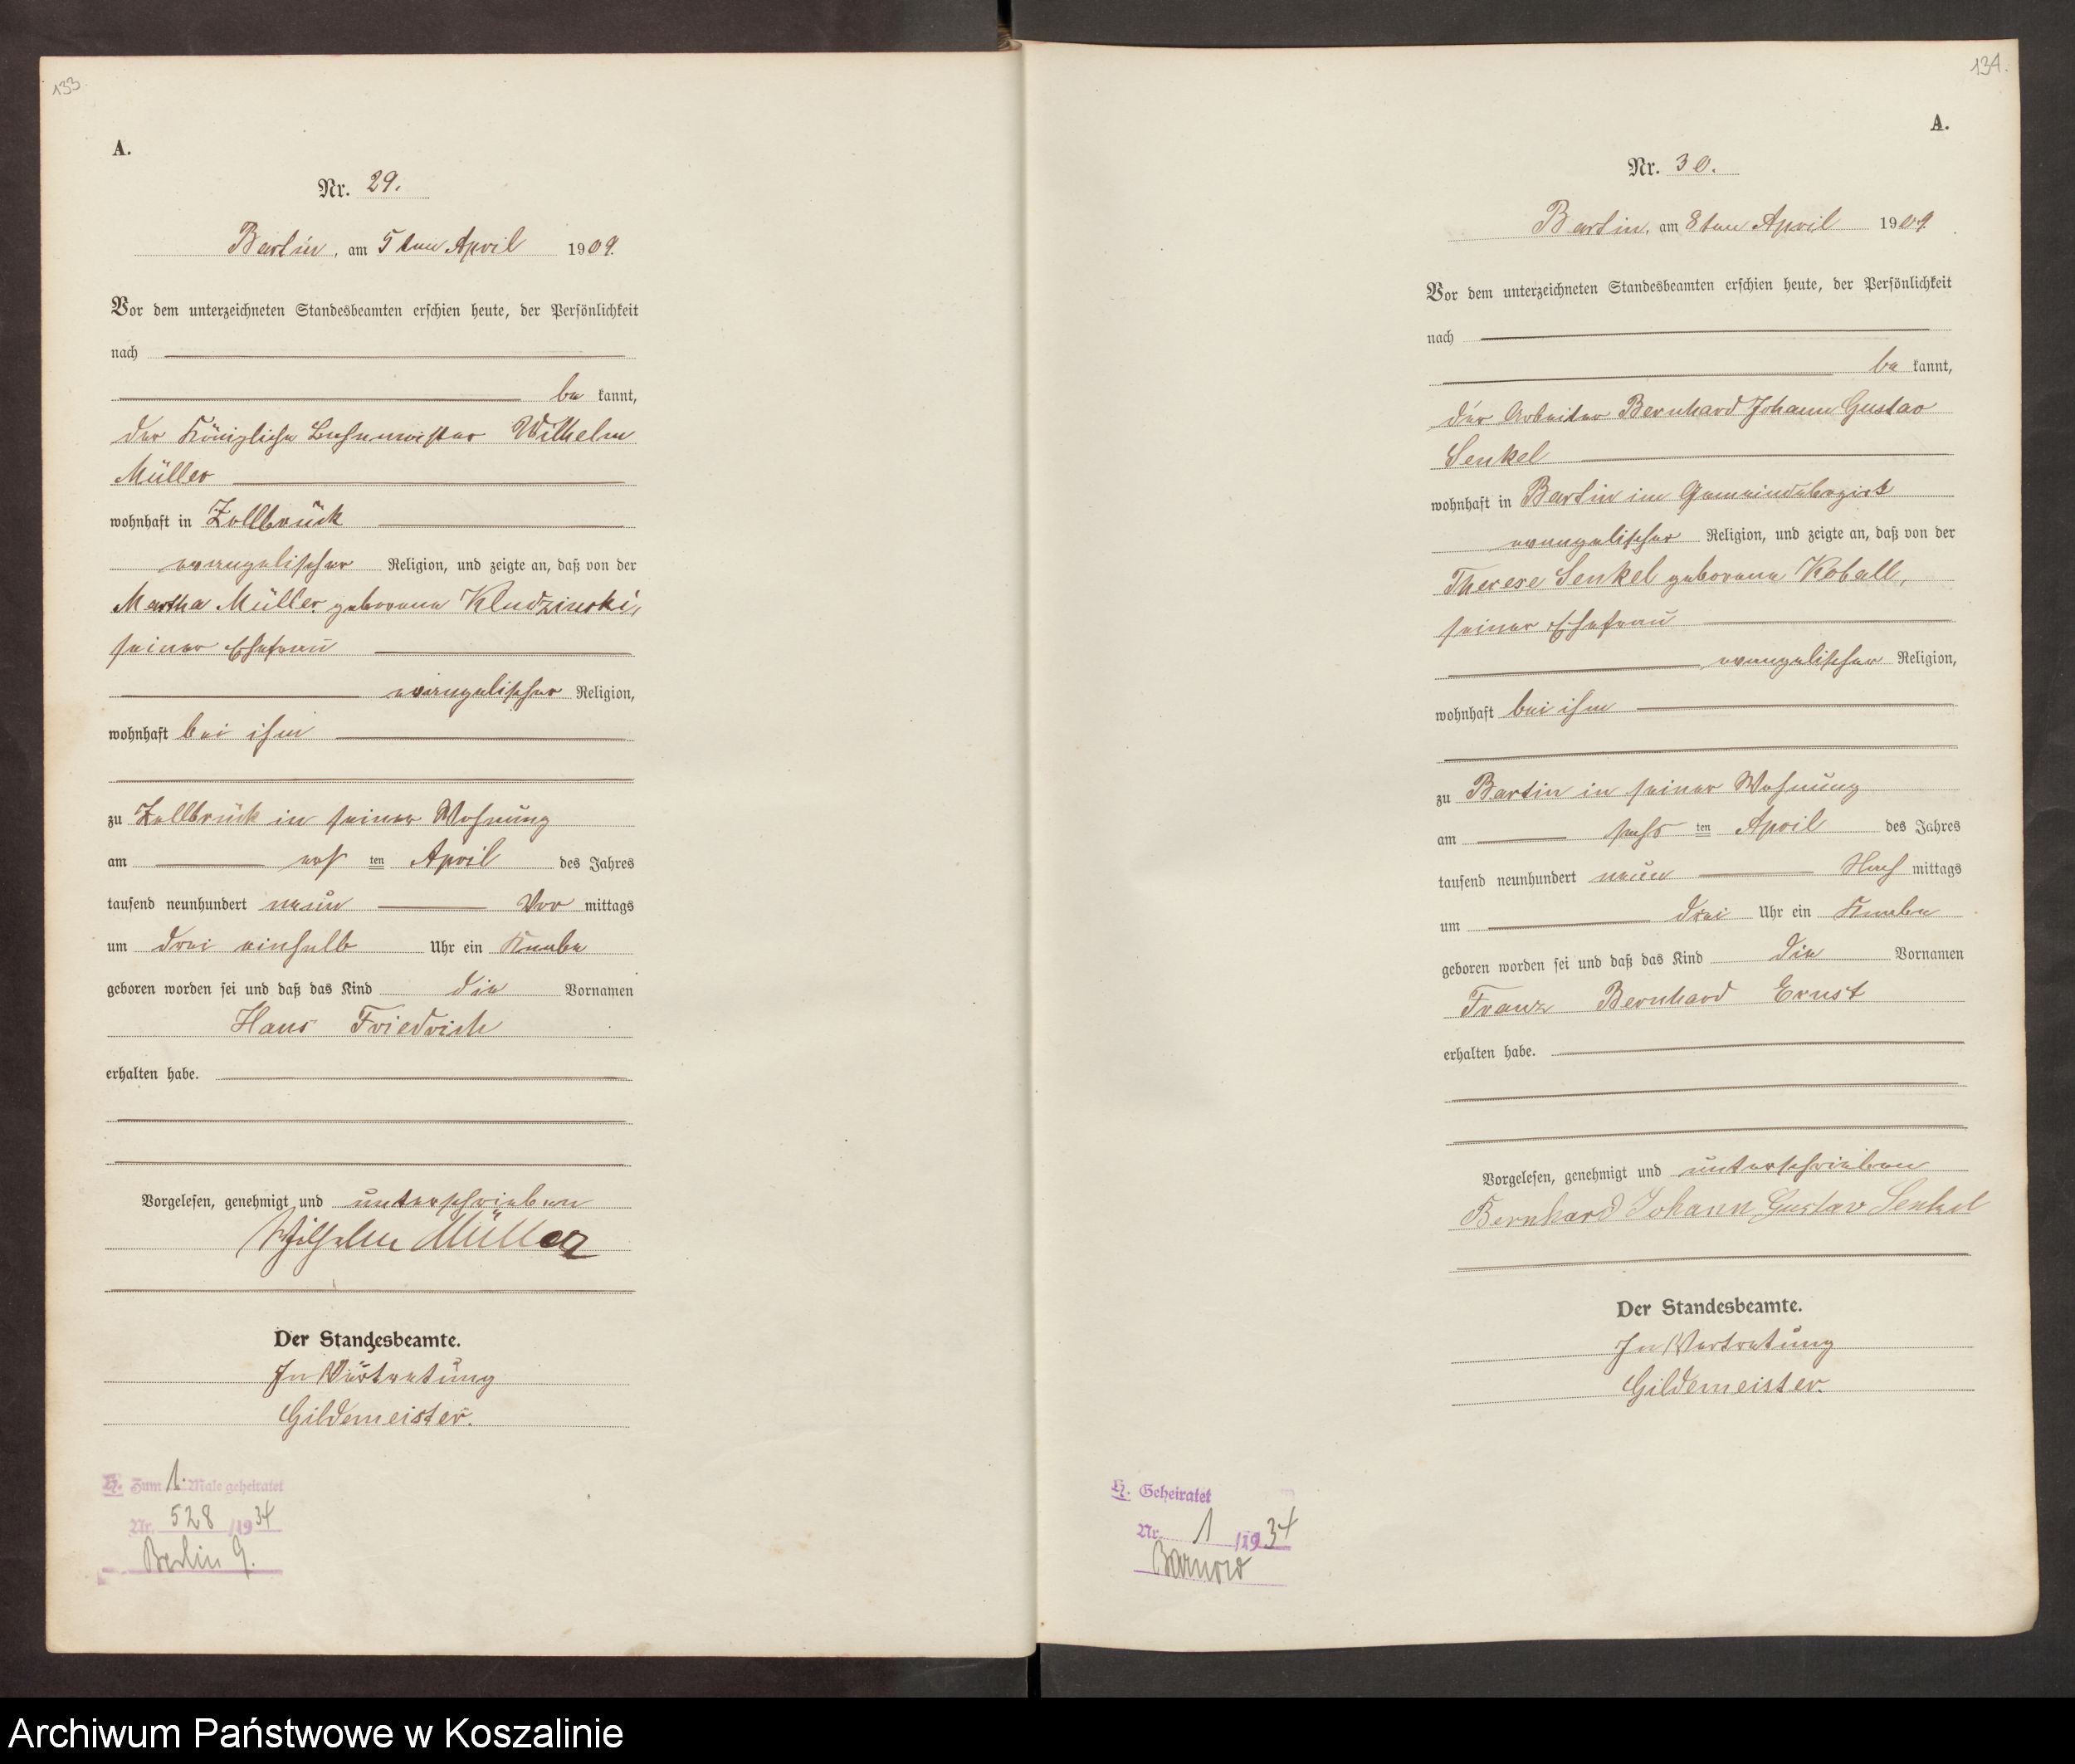 133.
A.
Nr. 29.
Bartin, am 5ten April 1909.
Vor dem unterzeichneten Standesbeamten erschien heute, der Persönlichkeit
nach
be kannt,
der Königliche Bahnmeister Wilhelm
Müller
wohnhaft in Zollbrück
evangelischer Religion, und zeigte an, daß von der
Martha Müller geborene Kludzinski,
seiner Ehefrau
evangelischer Religion,
wohnhaft bei ihm
zu Zollbrück in seiner Wohnung
am ersten April des Jahres
tausend neunhundert neun Vor mittags
um drei einhalb Uhr ein Knabe
geboren worden sei und daß das Kind die Vornamen
Hans Friedrich
erhalten habe.
Vorgelesen, genehmigt und unterschrieben
Wilhelm Müller
Der Standesbeamte.
In Vertretung
Gildemeister.
H. Zum 1. Male geheiratet
Nr. 528 /1934
Berlin 9.
134.
A.
Nr. 30.
Bartin, am 8ten April 1909.
Vor dem unterzeichneten Standesbeamten erschien heute, der Persönlichkeit
nach
be kannt,
der Arbeiter Bernhard Johann Gustav
Senkel
wohnhaft in Bartin im Gemeindebezirk
evangelischer Religion, und zeigte an, daß von der
Therese Senkel geborene Koball,
seiner Ehefrau
evangelischer Religion,
wohnhaft bei ihm
zu Bartin in seiner Wohnung
am sechs ten April des Jahres
tausend neunhundert neun Nach mittags
um drei Uhr ein Knabe
geboren worden sei und daß das Kind die Vornamen
Franz Bernhard Ernst
erhalten habe.
Vorgelesen, genehmigt und unterschrieben
Bernhard Johann Gustav Senkel
Der Standesbeamte.
In Vertretung
Gildemeister.
H. Geheiratet
Nr. 1 /1934
Barnow
Archiwum Państwowe w Koszalinie